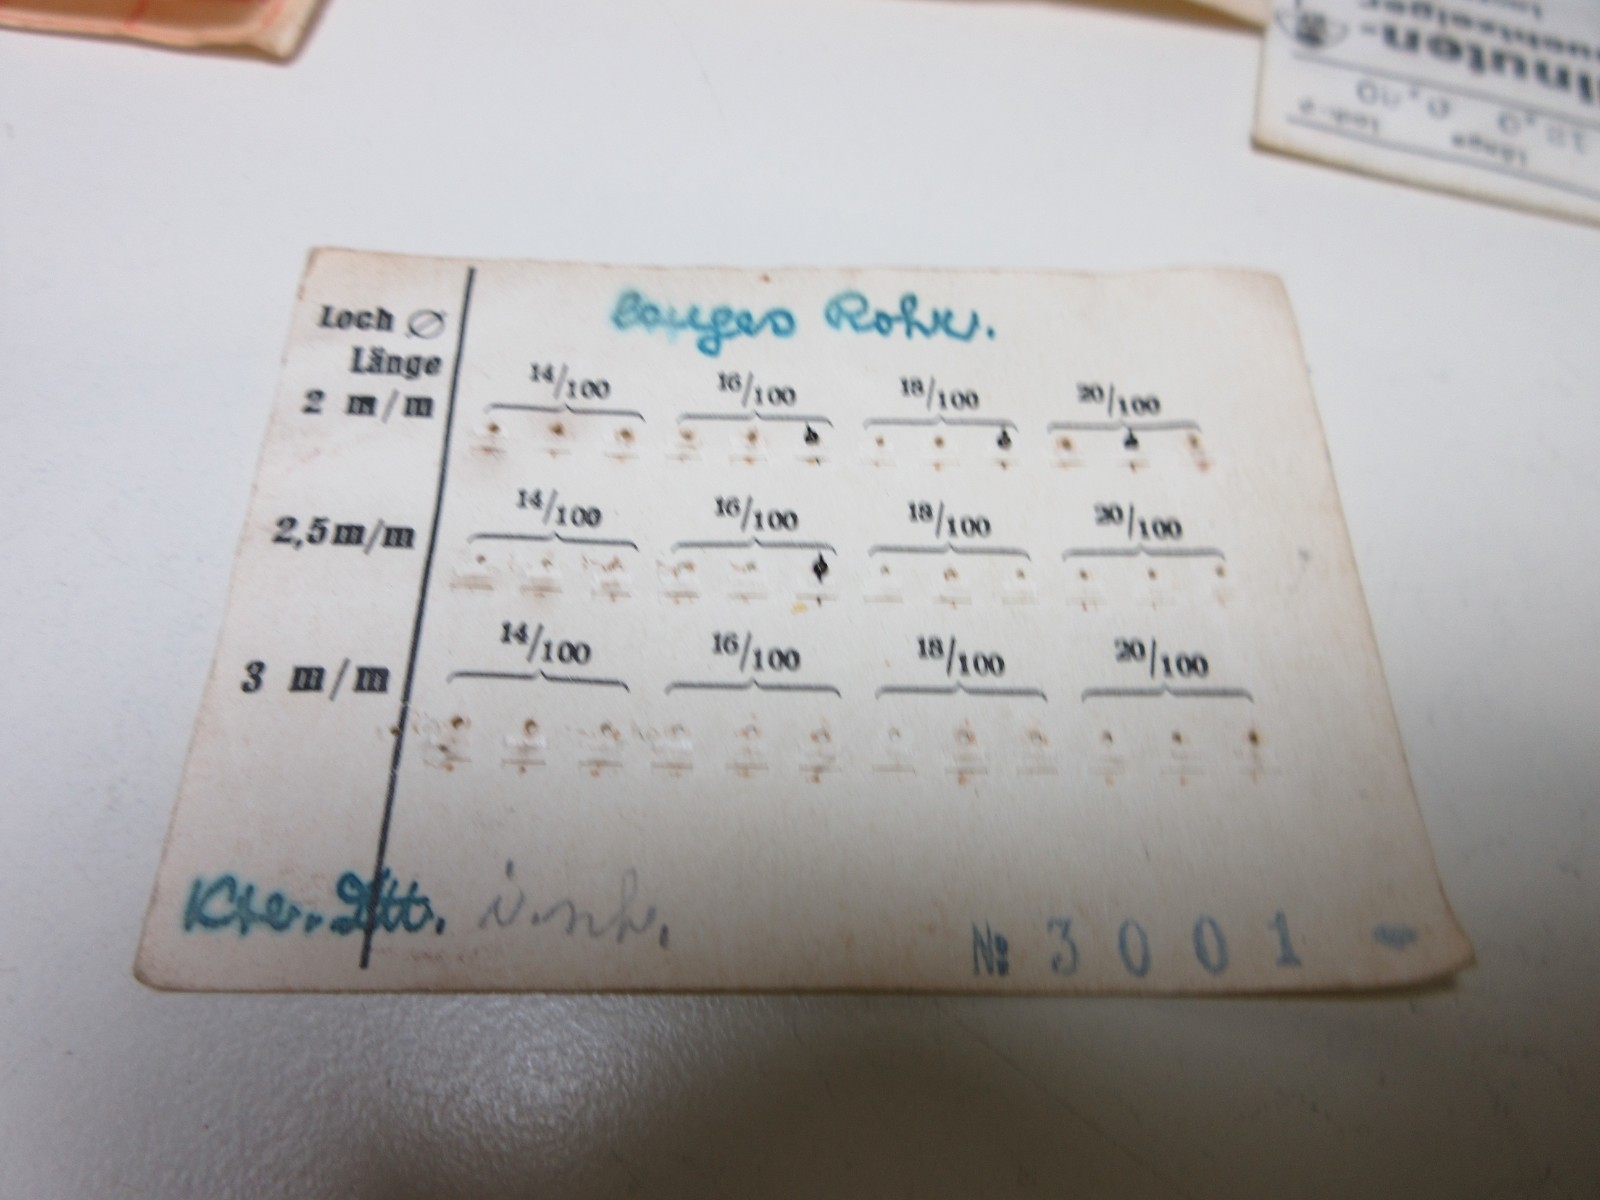 Loch ∅
Länge
langes Rohr.
2 m/m
14/100 16/100 18/100 20/100
2,5 m/m
14/100 16/100 18/100 20/100
3 m/m
14/100 16/100 18/100 20/100
№ 3001
Länge Loch-∅
0,10